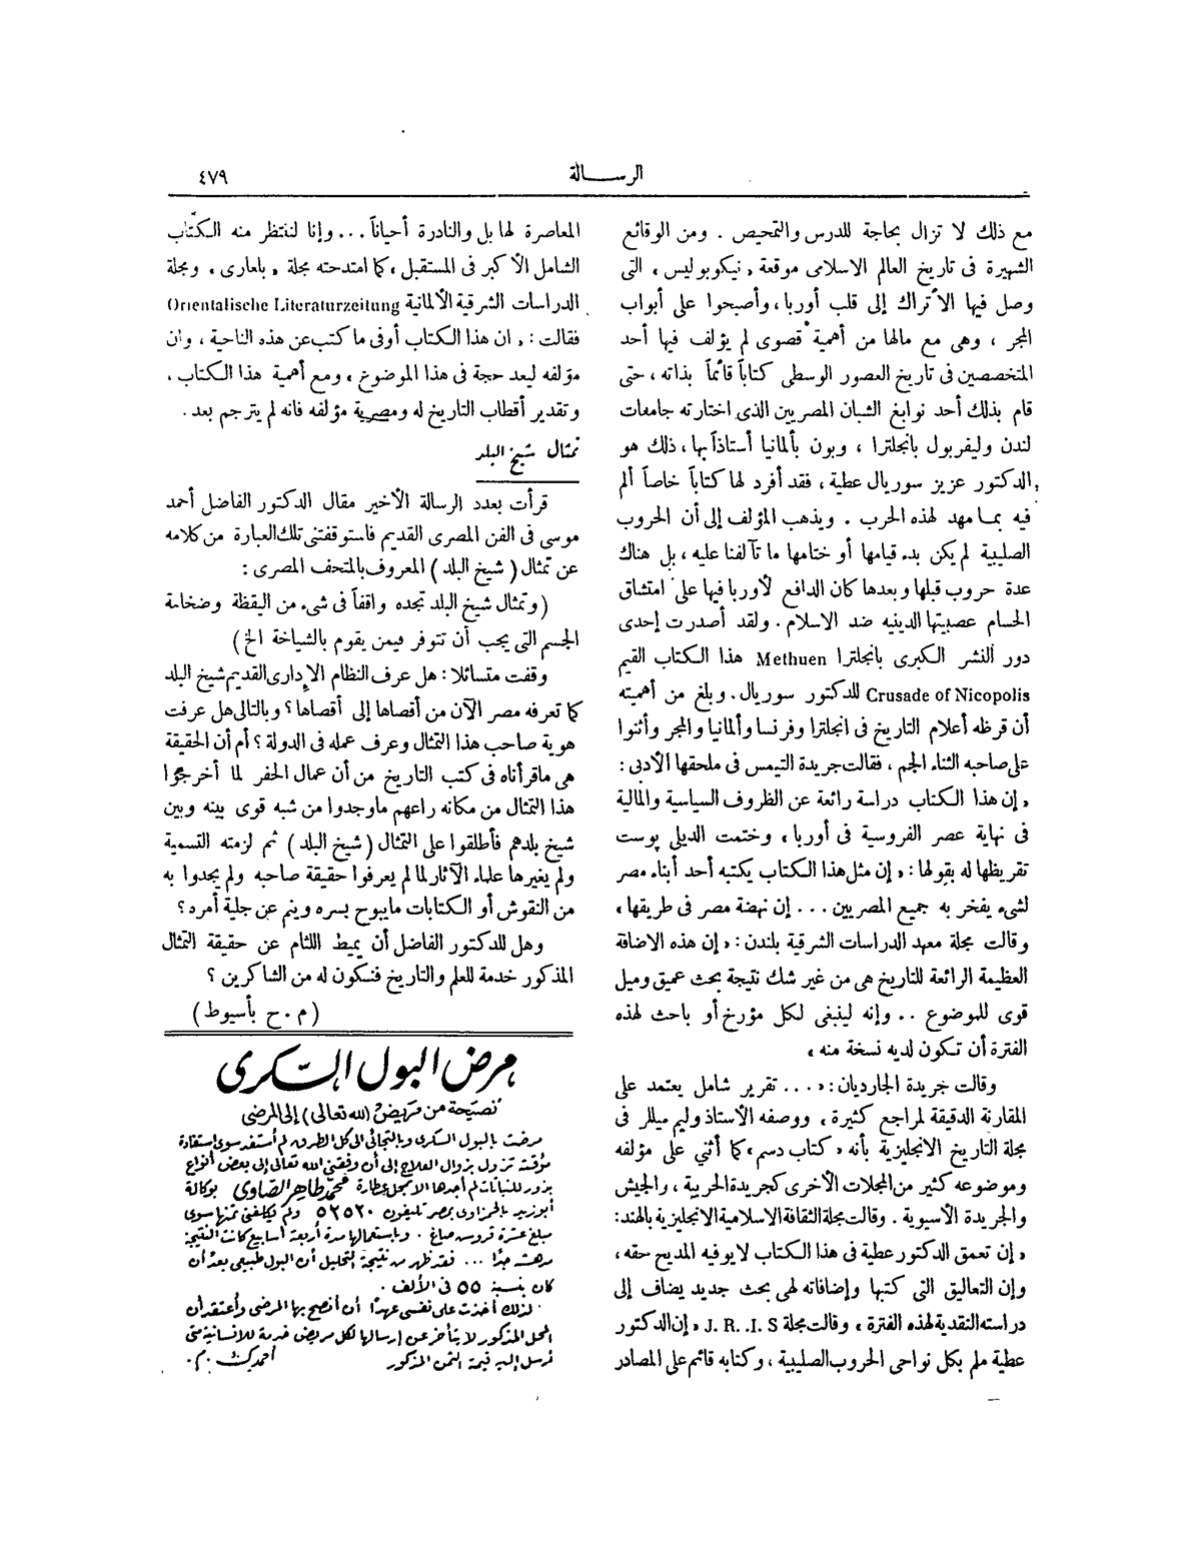 الرسالة
٤٧٩
مع ذلك لا تزال بحاجة للدرس والتمحيص . ومن الوقائع
الشهيرة فى تاريخ العالم الاسلامى موقعة « نيكوبوليس » التى
وصل فيها الأتراك إلى قلب أوربا ، وأصبحوا على أبواب
المجر ، وهى مع مالها من أهمية قصوى لم يؤلف فيها أحد
المتخصصين فى تاريخ العصور الوسطى كتاباً قائماً بذاته ، حتى
قام بذلك أحد نوابغ الشبان المصريين الذى اختارته جامعات
لندن وليفربول بانجلترا ، وبون بألمانيا أستاذاً بها ، ذلك هو
الدكتور عزيز سوريال عطية ، فقد أفرد لها كتاباً خاصاً ألم
فيه بما مهد لهذه الحرب . ويذهب المؤلف إلى أن الحروب
الصليبية لم يكن بدء قيامها أو ختامها ما تآلفنا عليه ، بل هناك
عدة حروب قبلها وبعدها كان الدافع لأوربا فيها على امتشاق
الحسام عصبيتها الدينيه ضد الاسلام . ولقد أصدرت إحدى
دور النشر الكبرى بانجلترا Methuen هذا الكتاب القيم
Crusade of Nicopolis للدكتور سوريال . وبلغ من أهميته
أن قرظه أعلام التاريخ فى انجلترا وفرنسا وألمانيا والمجر وأثنوا
على صاحبه الثناء الجم ، فقالت جريدة التيمس فى ملحقها الأدبى :
« إن هذا الكتاب دراسة رائعة عن الظروف السياسية والمالية
فى نهاية عصر الفروسية فى أوربا » وختمت الديلى پوست
تقريظها له بقولها : « إن مثل هذا الكتاب يكتبه أحد أبناء مصر
لشىء يفخر به جميع المصريين ... إن نهضة مصر فى طريقها »
وقالت مجلة معهد الدراسات الشرقية بلندن : « إن هذه الاضافة
العظيمة الرائعة للتاريخ هى من غير شك نتيجة بحث عميق وميل
قوى للموضوع .. وإنه لينبغى لكل مؤرخ أو باحث لهذه
الفترة أن تكون لديه نسخة منه »
وقالت جريدة الجارديان : « ... تقرير شامل يعتمد على
المقارنة الدقيقة لمراجع كثيرة » ووصفه الأستاذ وليم ميللر فى
مجلة التاريخ الانجليزية بأنه « كتاب دسم » كما أثني على مؤلفه
وموضوعه كثير من المجلات الأخرى كجريدة الحربية ، والجيش
والجريدة الآسيوية . وقالت مجلة الثقافة الاسلامية الانجليزية بالهند :
« إن تعمق الدكتور عطية فى هذا الكتاب لا يوفيه المديح حقه ،
وإن التعاليق التى كتبها وإضافاته لهى بحث جديد يضاف إلى
دراسته النقدية لهذه الفترة » وقالت مجلة J. R. .I. S « إن الدكتور
عطية ملم بكل نواحى الحروب الصليبية ، وكتابه قائم على المصادر
المعاصرة لها بل والنادرة أحياناً ... وإنا لننتظر منه الكتّاب
الشامل الأكبر فى المستقبل » كما امتدحته مجلة « بلعارى » ومجلة
الدراسات الشرقية الألمانية Orientalische Literaturzeitung
فقالت : « ان هذا الكتاب أوفى ما كتب عن هذه الناحية ، وان
مؤلفه ليعد حجة فى هذا الموضوع » ومع أهمية هذا الكتاب ،
وتقدير أقطاب التاريخ له ومصرية مؤلفه فانه لم يترجم بعد .
تمثال شيخ البلد
قرأت بعدد الرسالة الأخير مقال الدكتور الفاضل أحمد
موسى فى الفن المصرى القديم فاستوقفتنى تلك العبارة من كلامه
عن تمثال ( شيخ البلد ) المعروف بالمتحف المصرى :
( وتمثال شيخ البلد تجده واقفاً فى شىء من اليقظة وضخامة
الجسم التى يجب أن تتوفر فيمن يقوم بالشياخة الخ )
وقفت متسائلا : هل عرف النظام الإدارى القديم شيخ البلد
كما تعرفه مصر الآن من أقصاها إلى أقصاها ؟ وبالتالى هل عرفت
هوية صاحب هذا التمثال وعرف عمله فى الدولة ؟ أم أن الحقيقة
هى ماقرأناه فى كتب التاريخ من أن عمال الحفر لما أخرجوا
هذا التمثال من مكانه راعهم ماوجدوا من شبه قوى بينه وبين
شيخ بلدهم فأطلقوا على التمثال ( شيخ البلد ) ثم لزمته التسمية
ولم يغيرها علماء الآثار لما لم يعرفوا حقيقة صاحبه ولم يجدوا به
من النقوش أو الكتابات مايبوح بسره وينم عن جلية أمره ؟
وهل للدكتور الفاضل أن يميط اللثام عن حقيقة التمثال
المذكور خدمة للعلم والتاريخ فنكون له من الشاكرين ؟
( م . ح بأسيوط )
مرض البول السّكرى
نصيحة من مريض (لله تعالى) إلى المرضى
مرضت بالبول السكرى وبالتجائى الى كل الطرق لم أستفد سوى استفادة
مؤقتة تزول بزوال العلاج إلى أن وفقنى الله تعالى إلى بعض أنواع
بذور للنباتات لم أجدها الا بمحل عطارة محمد طاهر الضاوى بوكالة
أبوزيد بالحمزاوى بمصر تليفون ٥٢٥٢٠ ولم يكلفنى ثمنها سوى
مبلغ عشرة قروش صاغ . وباستعمالها مدة أربعة أسابيع كانت النتيجة
مدهشة جدًا ... فقد ظهر من نتيجة التحليل أن البول طبيعى بعد أن
كان بنسبة ٥٥ فى الألف .
لذلك أخذت على نفسى عهدًا أن أنصح بها المرضى وأعتقد أن
المحل المذكور لا يتأخر عن إرسالها لكل مريض خدمة للانسانية متى
أرسل إليه قيمة الثمن المذكور